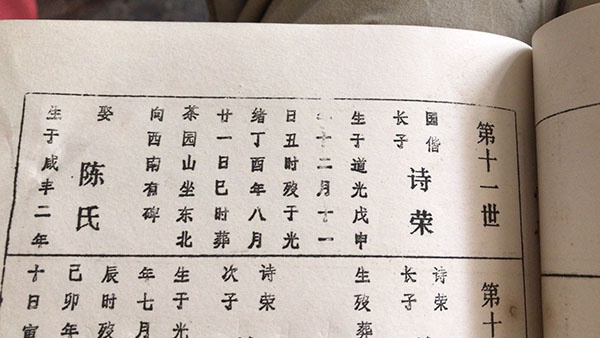 第十一世
国偕
长子
诗荣
生于道光戊申
年十二月十一
日丑时殁于光
绪丁酉年八月
廿一日巳时葬
茶园山坐东北
向西南有碑
娶
陈氏
生于咸丰二年
第十
诗荣
长子
生殁葬
诗荣
次子
生于光
年七月
辰时殁
己卯年
十日寅